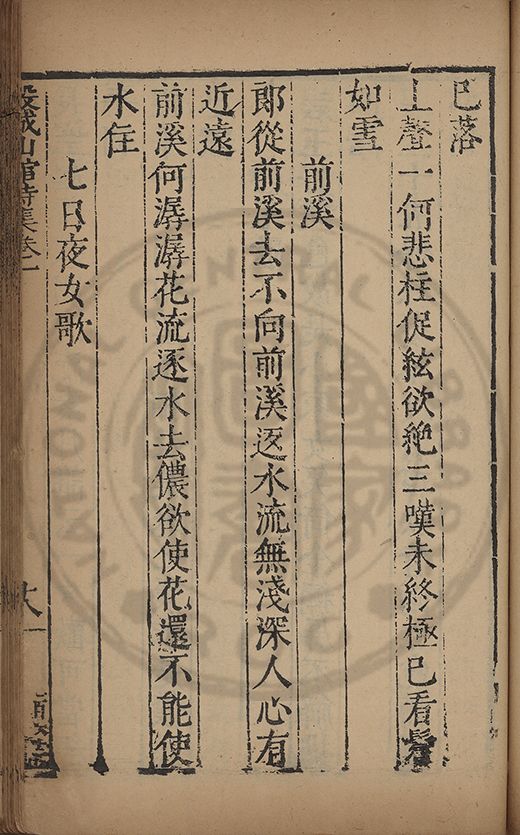 已落
上聲一何悲柱促絃欲絶三嘆未終極已看鬢
如雪
前溪
郎從前溪去不向前溪返水流無淺深人心有
近遠
前溪何潺潺花流逐水去儂欲使花還不能使
水住
七日夜女歌
城山館詩集卷一